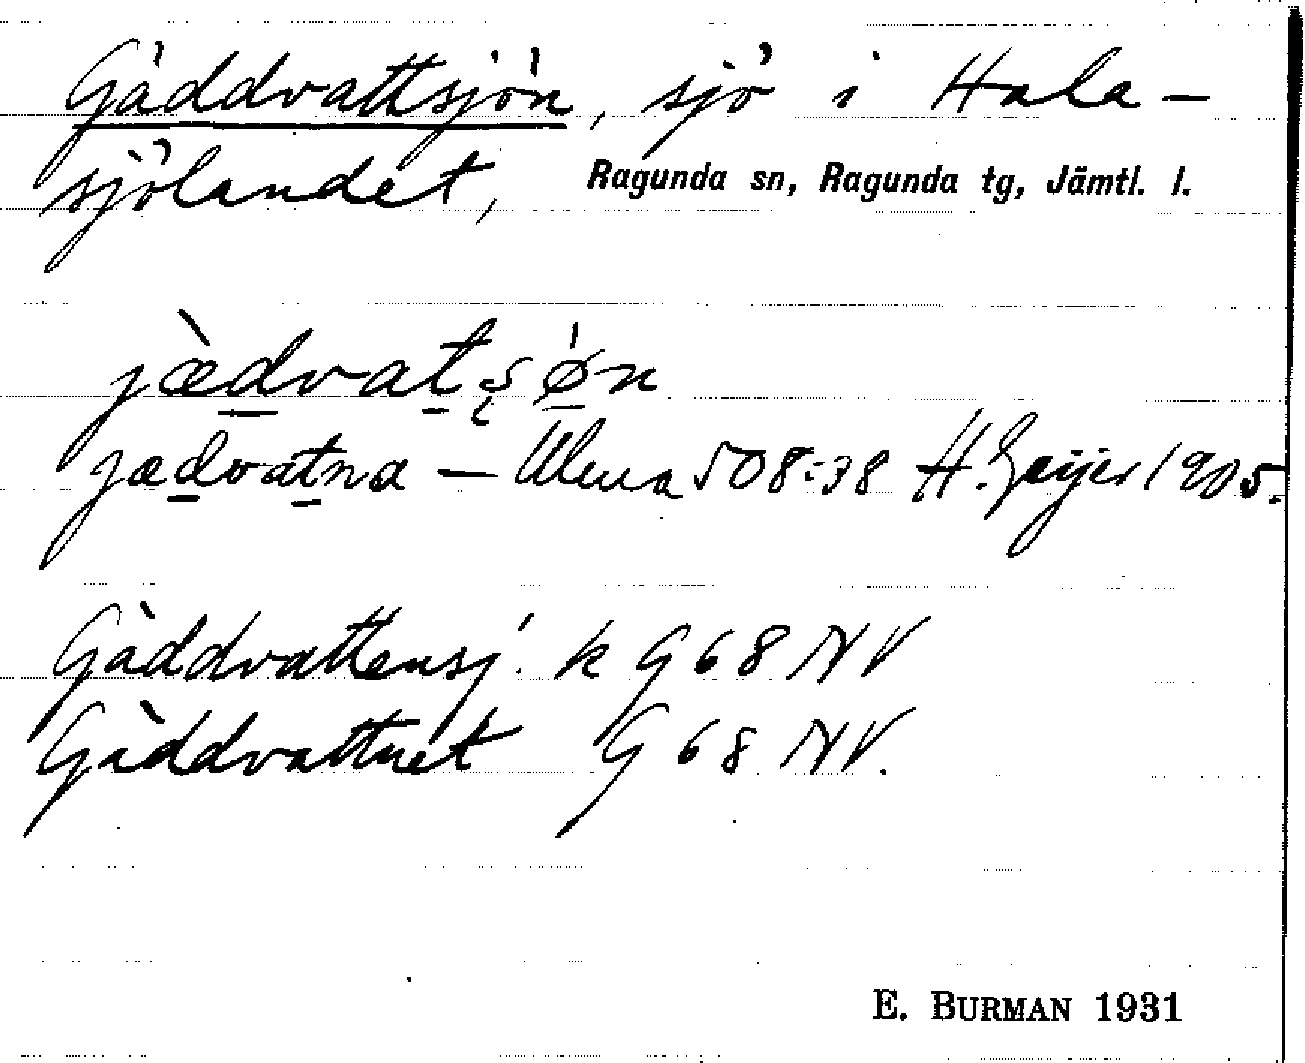 Gäddvattsjön, sjö i Hala-
sjölandet, Ragunda sn, Ragunda tg, Jämtl. l.
jæ̀dvatʂǿn
jædvatna — Ulma 508:38 H. Geijer 1905.
Gäddvattensj. k G 68 NV
Gäddvattnet G 68 NV.
E. BURMAN 1931